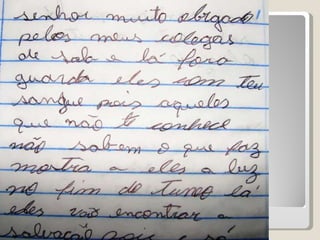 senhor muito obrigado!
pelos meus colegas
de sala e lá fora
guarda eles com teu
sangue pois aqueles
que não te conhece
não sabem o que faz
mostra a eles a luz
no fim do tuneo lá
eles vão encontrar a
salvação pois só